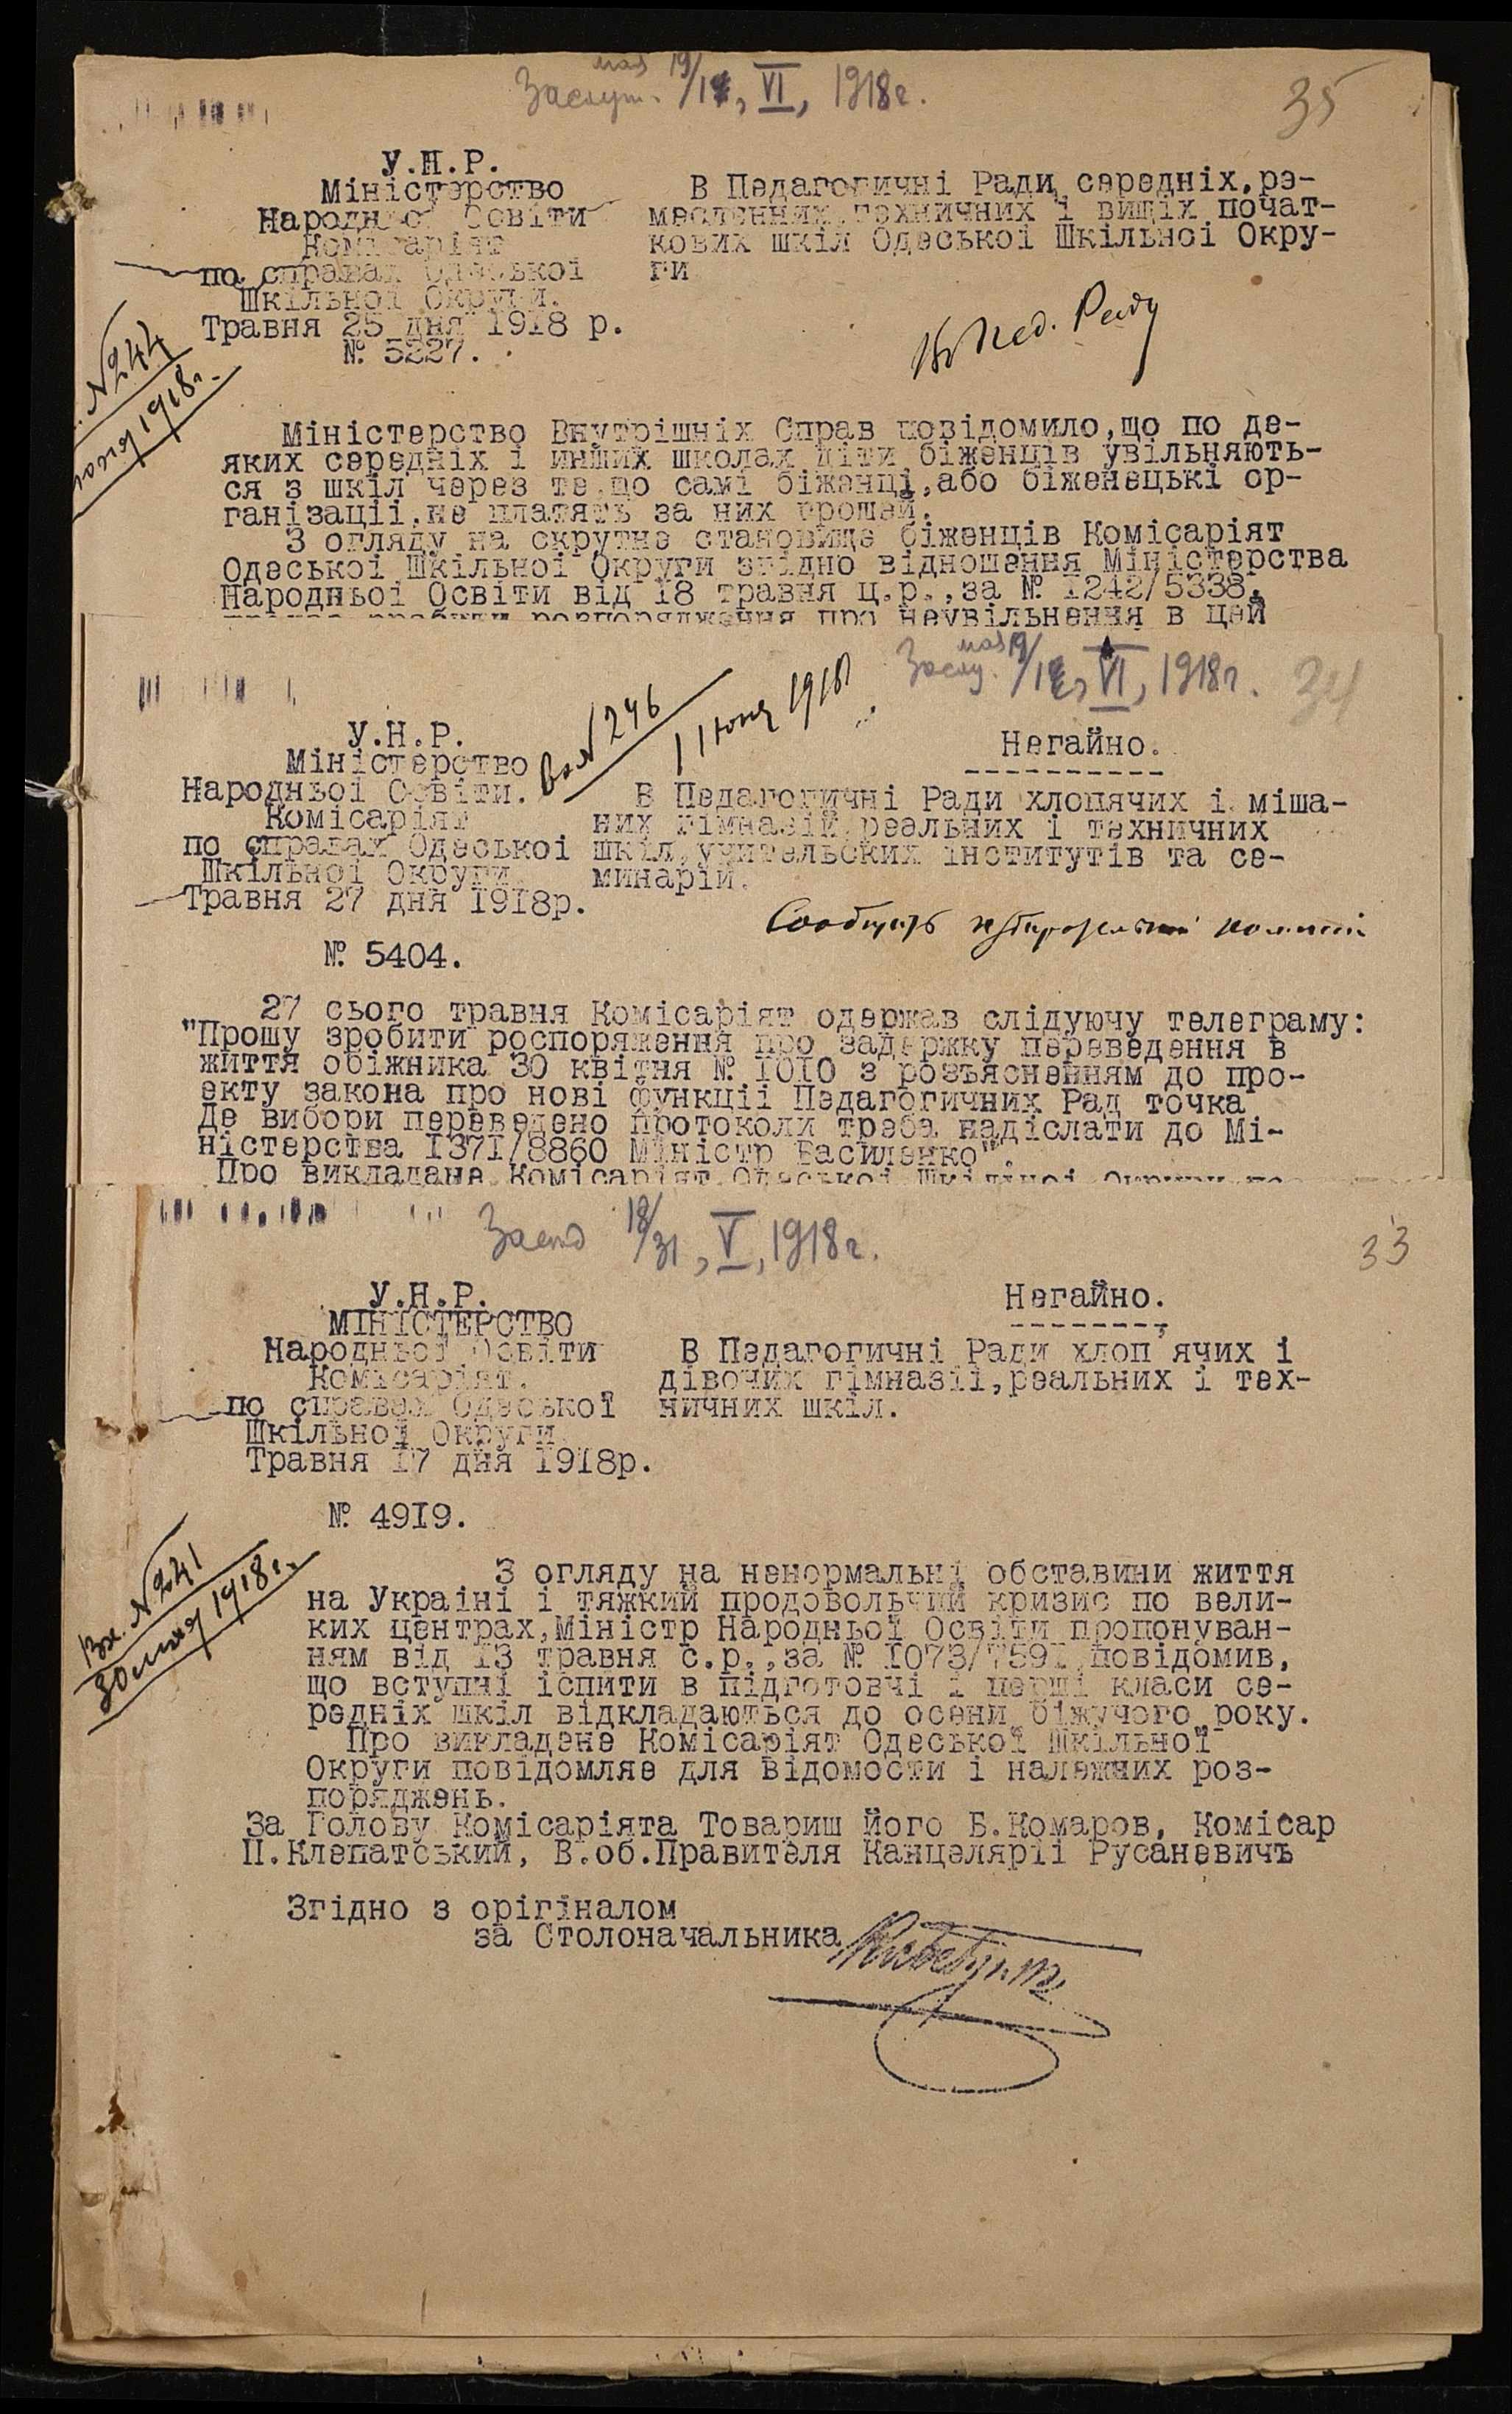 мая 19/
Заслуш. /1, VI, 1918г.
35
У.Н.Р.
Міністерство
Народньоі Освіти
Комісаріят
по справах Одеськоі
Шкільноі Округи.
Травня 25 дня 1918 р.
№ 5227.
В Педагогичні Ради середніх,ре-
месленних,техничних і вищіх почат-
кових шкіл Одеськоі Шкільноі Окру-
ги
В Пед. Раду
№244
1918г.
Міністерство Внутрішніх Справ повідомило,що по де-
яких середніх і инших школах діти біженців увільняють-
ся з шкіл через те,що самі біженці,або біженецькі ор-
ганізаціі,не платять за них грошей.
З огляду на скрутне становище біженців Комісаріят
Одеськоі Шкільноі Округи згідно відношення Міністерства
Народньоі Освіти від 18 травня ц.р.,за № I242/5338,
розпорядження про неувільнення в цей
мая 19/
Заслу. /1, VI, 1918г.
34
Вх №246
1 Июня 1918
У.Н.Р.
Міністерство
Народньоі Освіти.
Комісаріят
по справах Одеськоі
Шкільноі Округи
Травня 27 дня I9I8р.
№ 5404.
Негайно.
В Педагогичні Ради хлопячих і міша-
них гімназій,реальних і техничних
шкіл,учительских інститутів та се-
минарій.
Сообщить
27 сього травня Комісаріят одержав слідуючу телеграму:
"Прошу зробити роспоряження про задержку переведення в
життя обіжника 30 квітня № I0I0 з розъясненням до про-
екту закона про нові функціі Педагогичних Рад точка
Де вибори переведено протоколи треба надіслати до Мі-
ністерства I37I/8860 Міністр Василенко".
Про викладане Комісаріят Одеськоі Шкільноі Округи
Засл 18/31, V, 1918г.
33
У.Н.Р.
МІНІСТЕРСТВО
Народньоі Освіти
Комісаріят.
по справах Одеськоі
Шкільноі Округи
Травня I7 дня I9I8р.
№ 49I9.
Негайно.
В Педагогичні Ради хлоп'ячих і
дівочих гімназіі,реальних і тех-
ничних шкіл.
Вх. №241
30 мая 1918г.
З огляду на ненормальні обставини життя
на Украіні і тяжкий продовольчий кризис по вели-
ких центрах,Міністр Народньоі Освіти пропонуван-
ням від I3 травня с.р.,за № I073/759I,повідомив,
що вступні іспити в підготовчі і перші класи се-
редніх шкіл відкладаються до осени біжучого року.
Про викладене Комісаріят Одеської Шкільної
Округи повідомляе для відомости і належних роз-
поряджень.
За Голову Комісаріята Товариш його Б.Комаров, Комісар
П.Клепатський, В.об.Правителя Канцеляріі Русаневичъ
Згідно з орігіналом
за Столоначальника